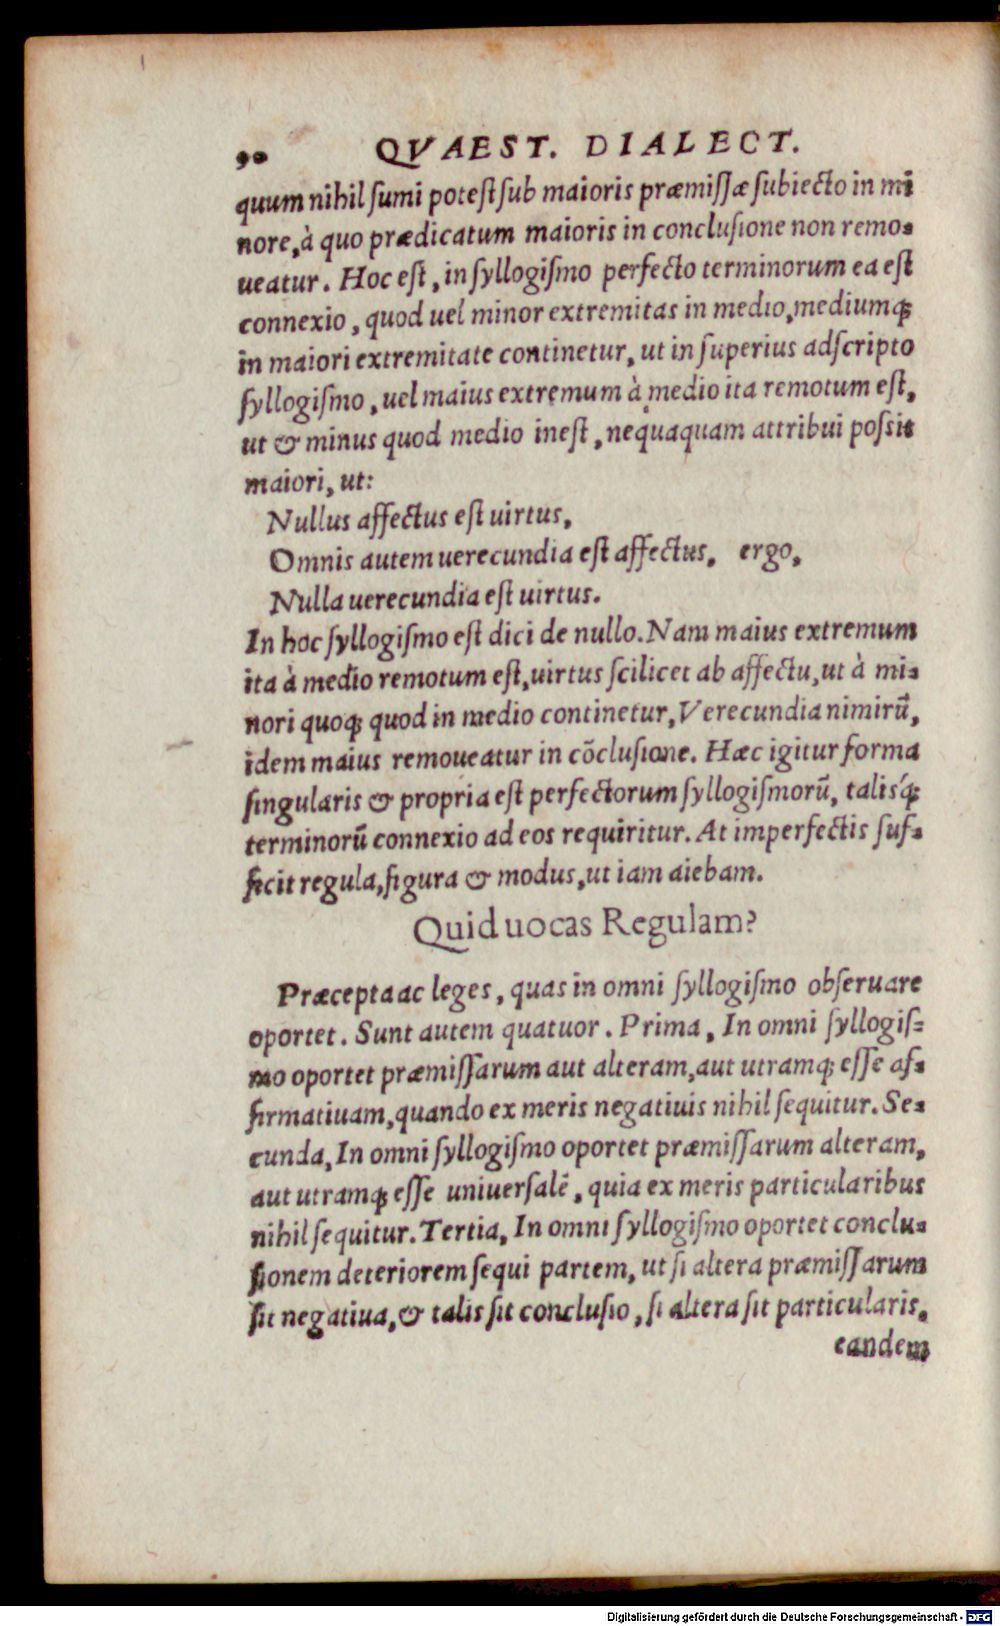 90 QVAEST. DIALECT.
quum nihil ſumi poteſt ſub maioris præmiſſæ ſubiecto in mi
nore, à quo prædicatum maioris in concluſione non remo-
ueatur. Hoc eſt, in ſyllogiſmo perfecto terminorum ea eſt
connexio, quod uel minor extremitas in medio, mediumq́;
in maiori extremitate continetur, ut in ſuperius adſcripto
ſyllogiſmo, uel maius extremum à medio ita remotum eſt,
ut & minus quod medio ineſt, nequaquam attribui poſsit
maiori, ut:
Nullus affectus eſt uirtus,
Omnis autem uerecundia eſt affectus, ergo,
Nulla uerecundia eſt uirtus.
In hoc ſyllogiſmo eſt dici de nullo. Nam maius extremum
ita à medio remotum eſt, uirtus ſcilicet ab affectu, ut à mi-
nori quoq; quod in medio continetur, Verecundia nimirū,
idem maius remoueatur in cōcluſione. Hæc igitur forma
ſingularis & propria eſt perfectorum ſyllogiſmorū, talisq́;
terminorū connexio ad eos requiritur. At imperfectis ſuf-
ficit regula, figura & modus, ut iam aiebam.
Quid uocas Regulam?
Præcepta ac leges, quas in omni ſyllogiſmo obſeruare
oportet. Sunt autem quatuor. Prima, In omni ſyllogiſ-
mo oportet præmiſſarum aut alteram, aut utramq; eſſe af-
firmatiuam, quando ex meris negatiuis nihil ſequitur. Se-
cunda, In omni ſyllogiſmo oportet præmiſſarum alteram,
aut utramq; eſſe uniuerſalē, quia ex meris particularibus
nihil ſequitur. Tertia, In omni ſyllogiſmo oportet conclu-
ſionem deteriorem ſequi partem, ut ſi altera præmiſſarum
ſit negatiua, & talis ſit concluſio, ſi altera ſit particularis,
eandem
Digitalisierung gefördert durch die Deutsche Forschungsgemeinschaft - DFG